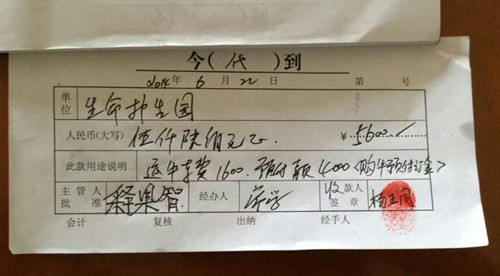 今(代)到
2014年6月22日 第 号
单位 生命护生园
人民币(大写) 伍仟陆佰元正 ¥5600
此款用途说明 运牛车费1600.预付款4000<购牛预付订金>
主管人批准 释果智 经办人 收款人签章 杨
会计 复核 出纳 经手人